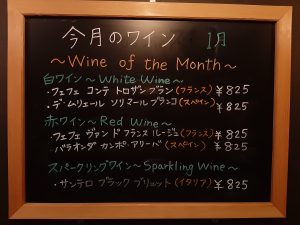 今月のワイン 1月
～Wine of the Month～
白ワイン～White Wine～
・フェフェ コンテ トロザン ブラン(フランス) ¥825
・デ・ムリエール ソリマール ブランコ(スペイン) ¥825
赤ワイン～Red Wine～
・フェフェ ヴァン ド フランス ルージュ(フランス) ¥825
・バラオンダ カンポ・アリーバ(スペイン) ¥825
スパークリングワイン～Sparkling Wine～
・サンテロ ブラック ブリュット(イタリア) ¥825